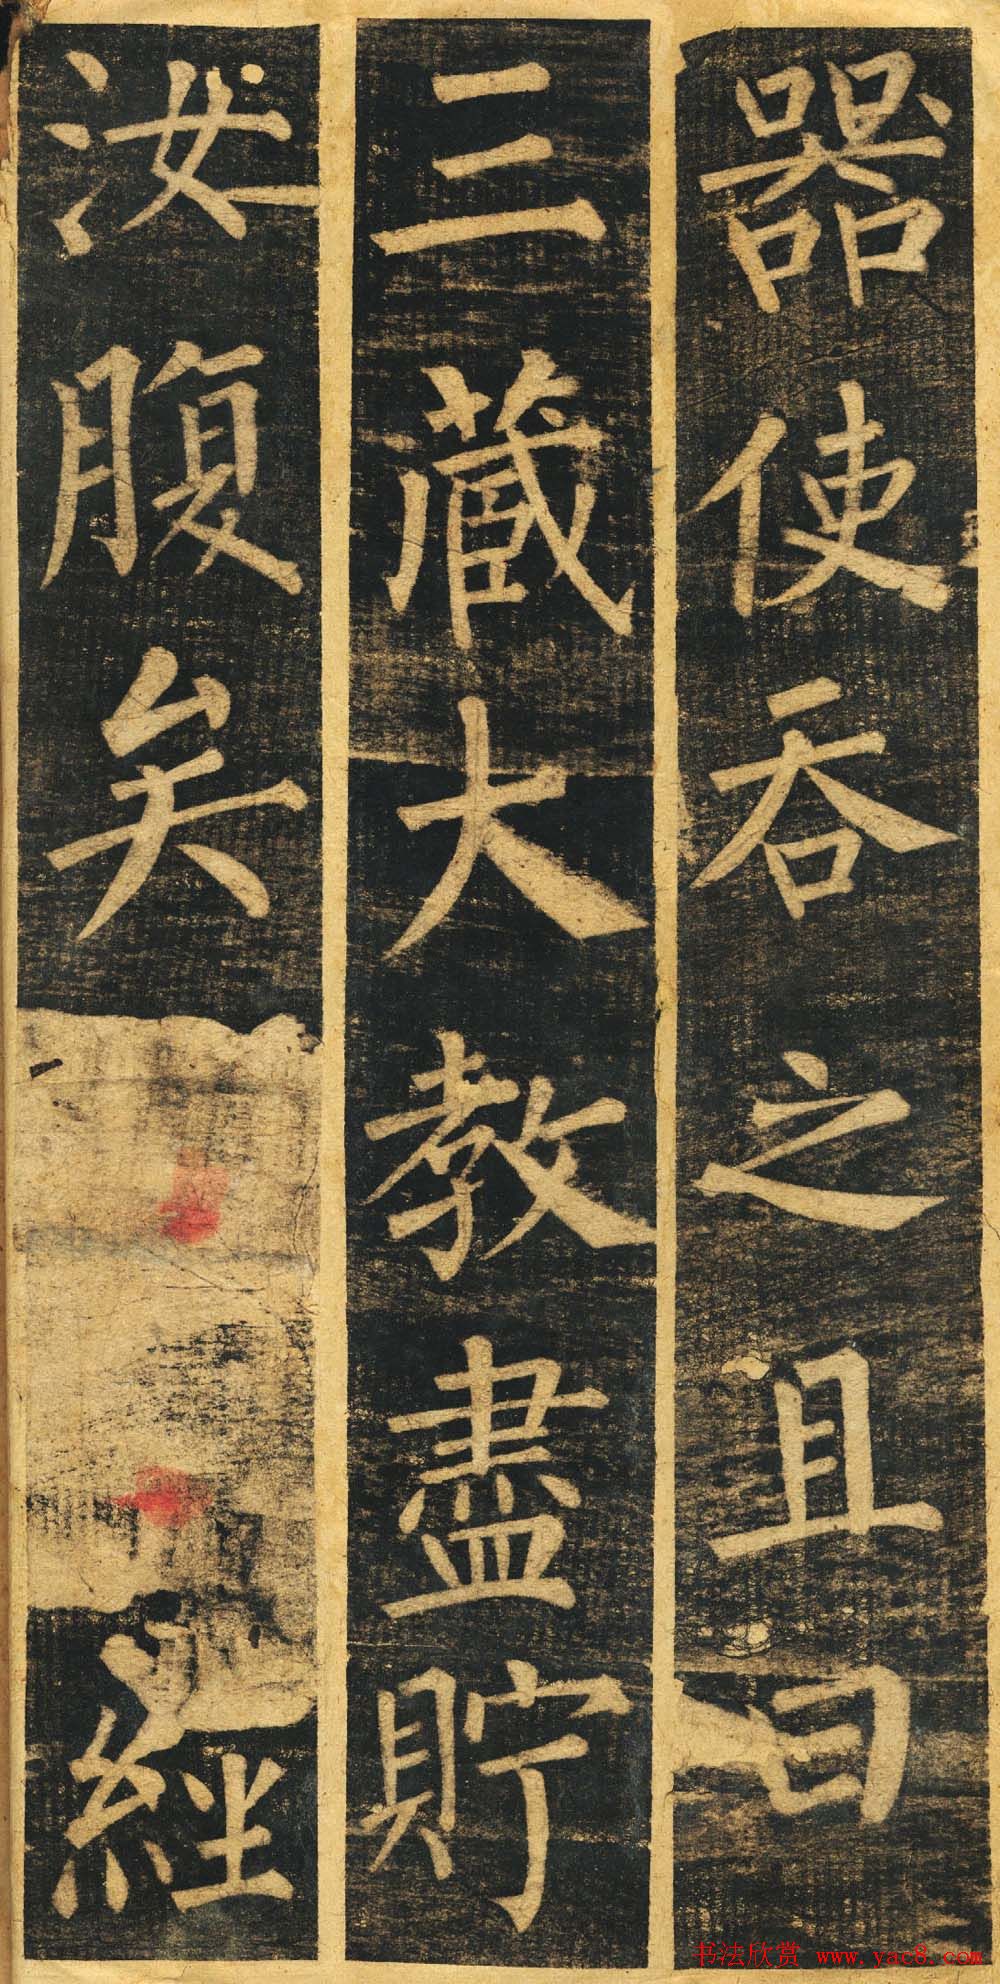 器使吞之且曰
三藏大教盡貯
汝腹矣
經
书法欣赏 www.yac8.com